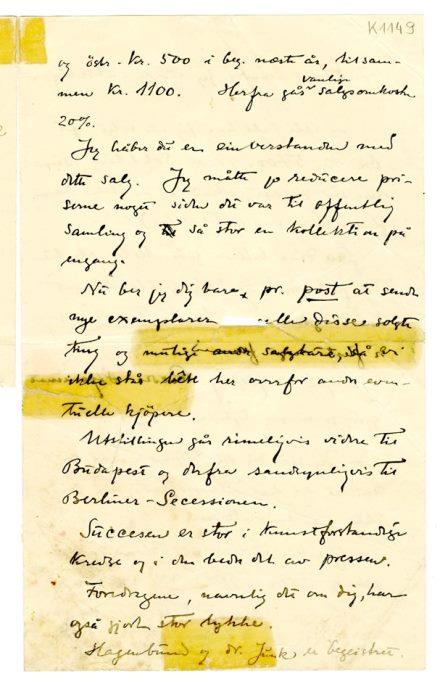 K1149
og östr. Kr. 500 i beg. næste år, tilsam-
men Kr. 1100. Herfra går vanlige salgsomkostn.
20%.
Jeg håber du er einverstanden med
dette salg. Jeg måtte jo reducere pri-
serne noget siden det var til offentlig
samling og så stor en kollektion på
engang.
Nu ber jeg dig bare, pr. post at sende
nye exemplarer disse solgte
ting og andre salgbare, så vi
ikke står her overfor andre even-
tuelle kjöpere.
Utstillingen går rimeligvis videre til
Budapest og derfra sandsynligvis til
Berliner-Secessionen.
Succesen er stor i kunstforstandige
kredse og i den bedre del av pressen.
Foredragene, navnlig det om dig, har
også gjort stor lykke.
Hagenbund og dr. Junk er begeistret.